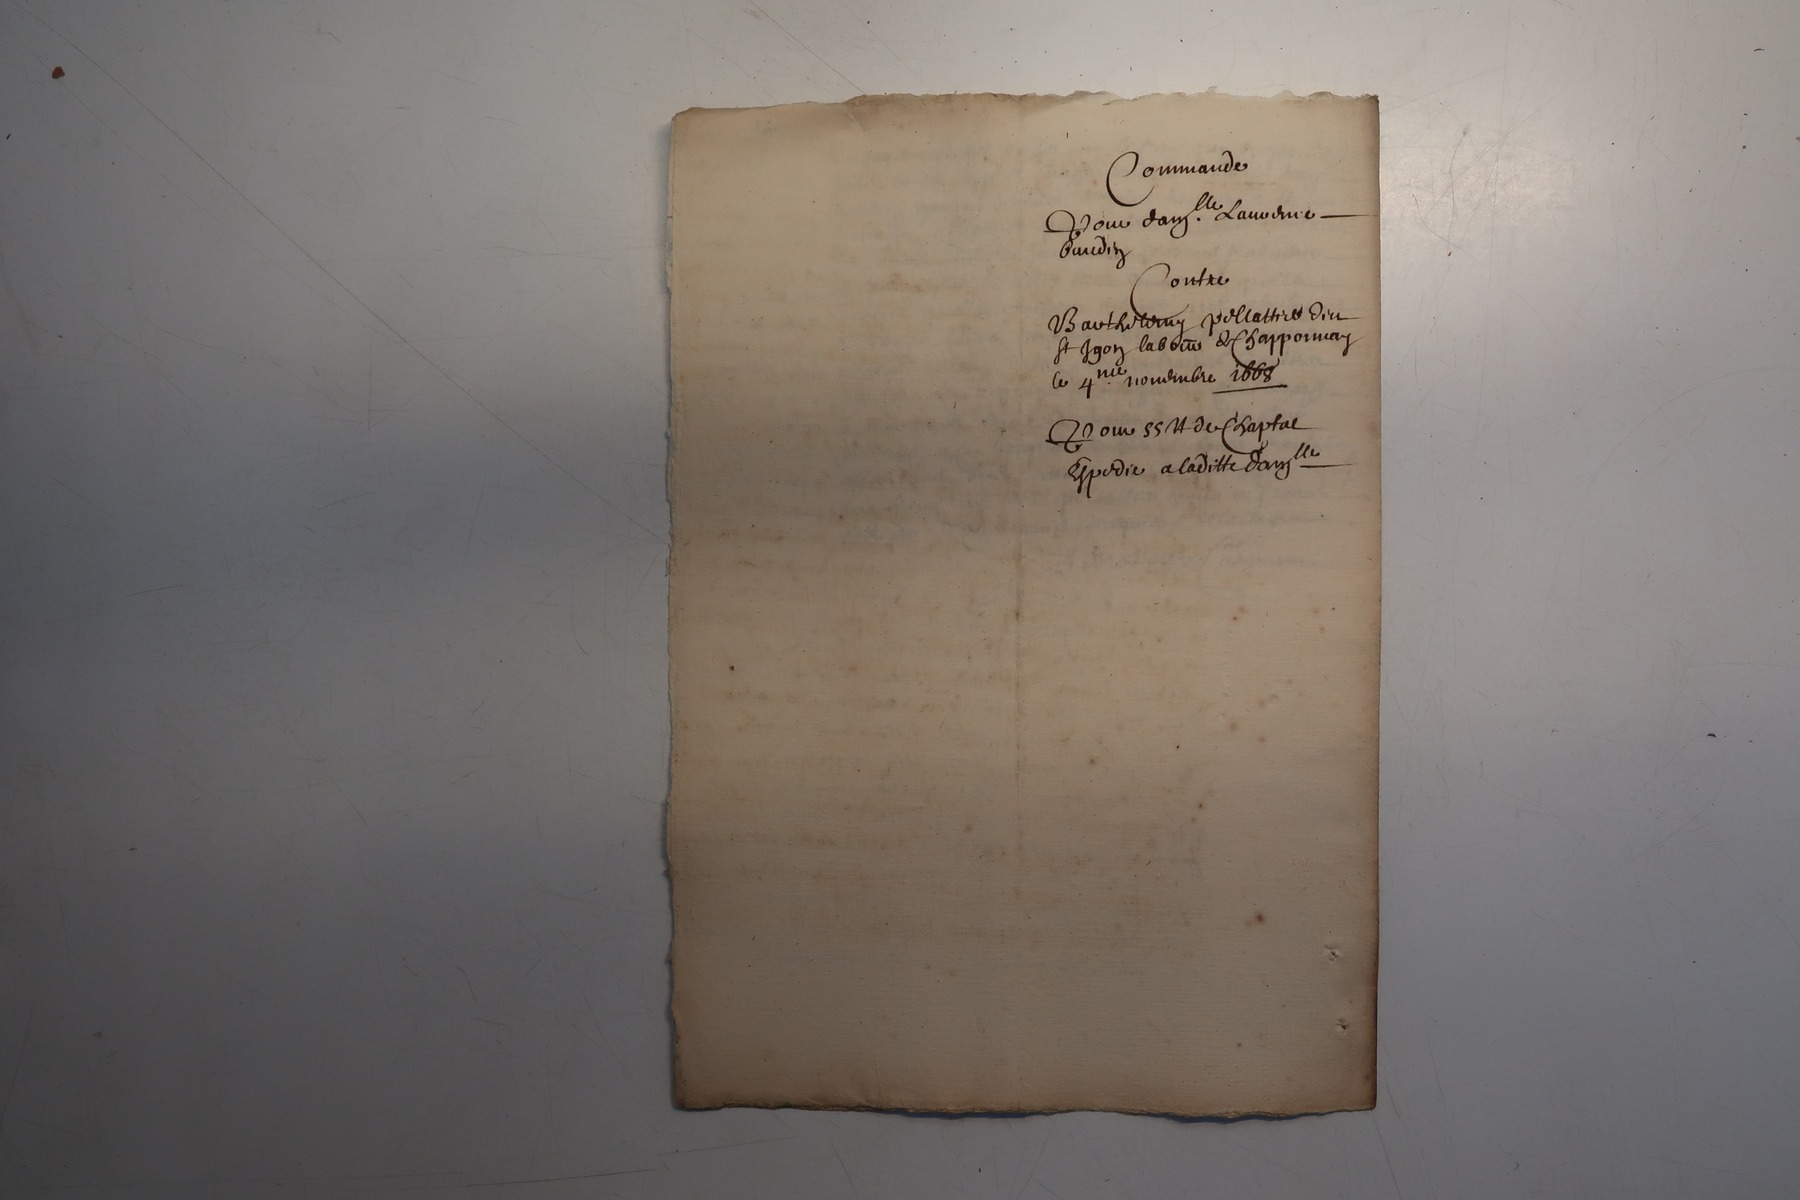 Commande
Pour dam.lle Laurence
baudin
Contre
Barthelemy pellattier dict
st Jgon labour de Chapponnay
le 4me novembre 1668
Pour 55 ll de Chaptal
Expedie a laditte damlle